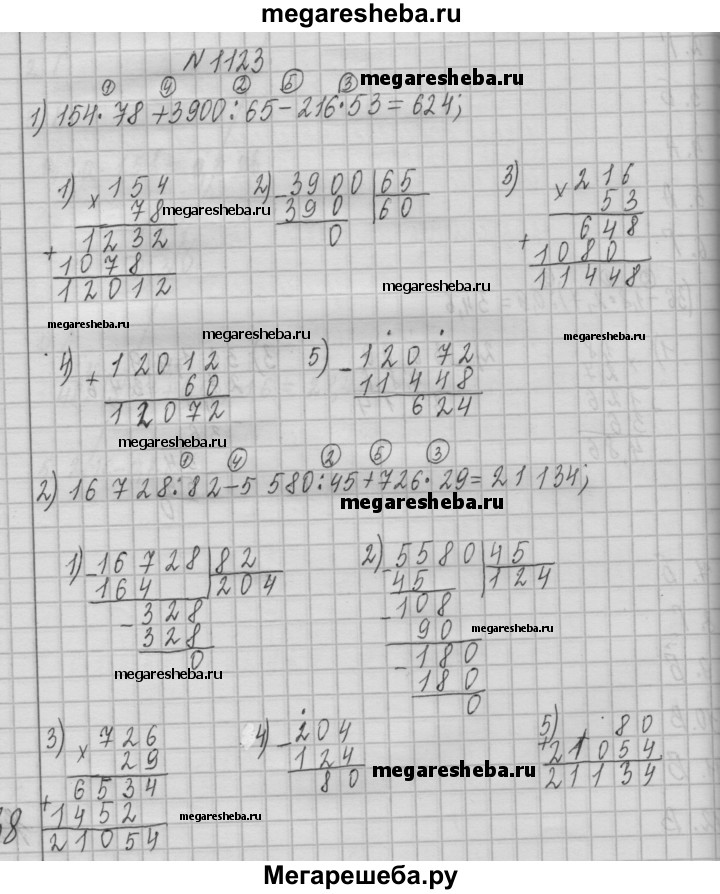 megaresheba.ru
N 1123
① ④ ② ⑤ ③ megaresheba.ru
1) 154·78+3900:65-216·53=624;
1) ×154 2) -3900 65 3) ×216
78 390 60 53
megaresheba.ru
1232 0 648
+1078 +1080
12012 11448
megaresheba.ru
megaresheba.ru megaresheba.ru megaresheba.ru
4) +12012 5) -12072
60 11448
12072 624
megaresheba.ru
① ④ ② ⑤ ③
2) 16 728:82-5 580:45+726·29=21 134;
megaresheba.ru
1) -16728 82 2) -5580 45
164 204 45 124
-328 -108
328 90 megaresheba.ru
0 -180
megaresheba.ru 180
0
3) ×726 4) -204 5) 80
29 124 +21054
6534 80 21134
megaresheba.ru
+1452 megaresheba.ru
21054
Мегарешеба.ру